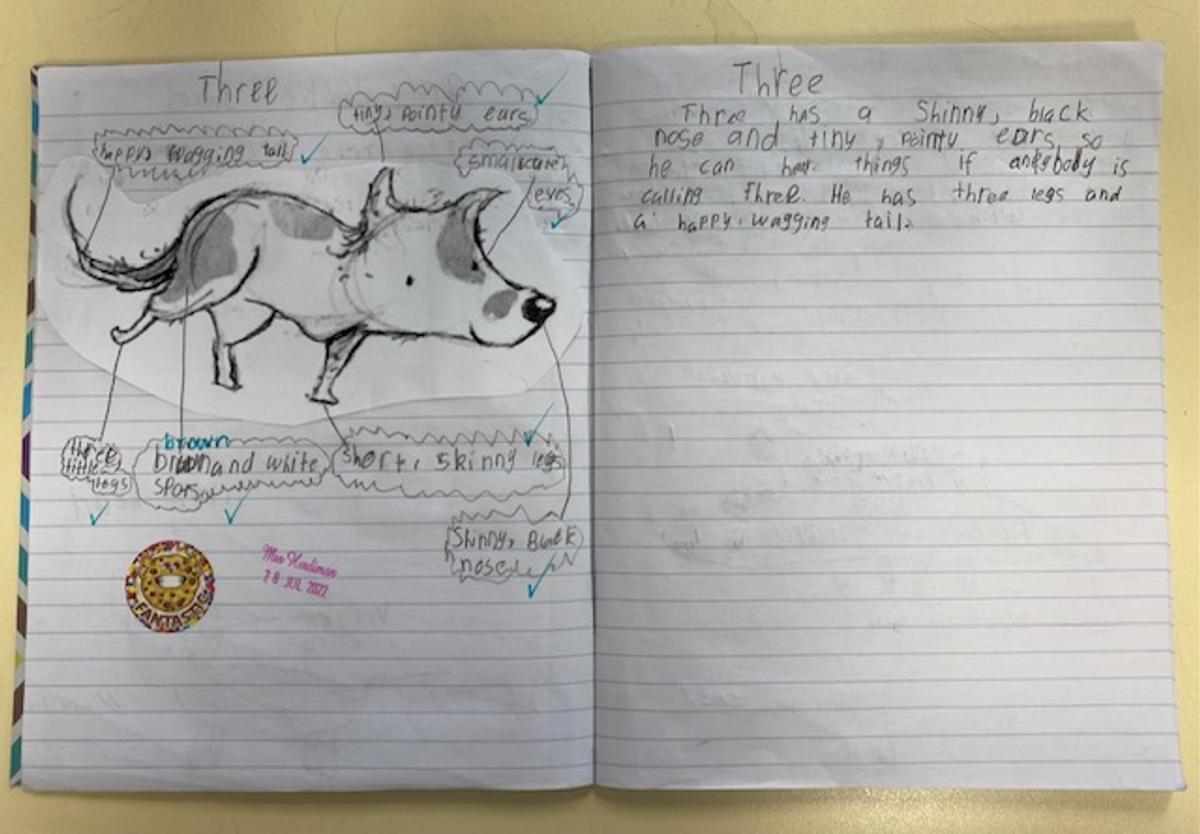 Three
tiny, pointy ears
happy, wagging tail
small cute
eyes
three
little
legs
brown
brown and white
spots
short, skinny legs
Shinny, Black
nose
FANTASTIC
28 JUL 2022
Three
Three has a Shinny, black
nose and tiny, pointy ears so
he can hear things if anybody is
calling Three. He has three legs and
a happy, wagging tail.